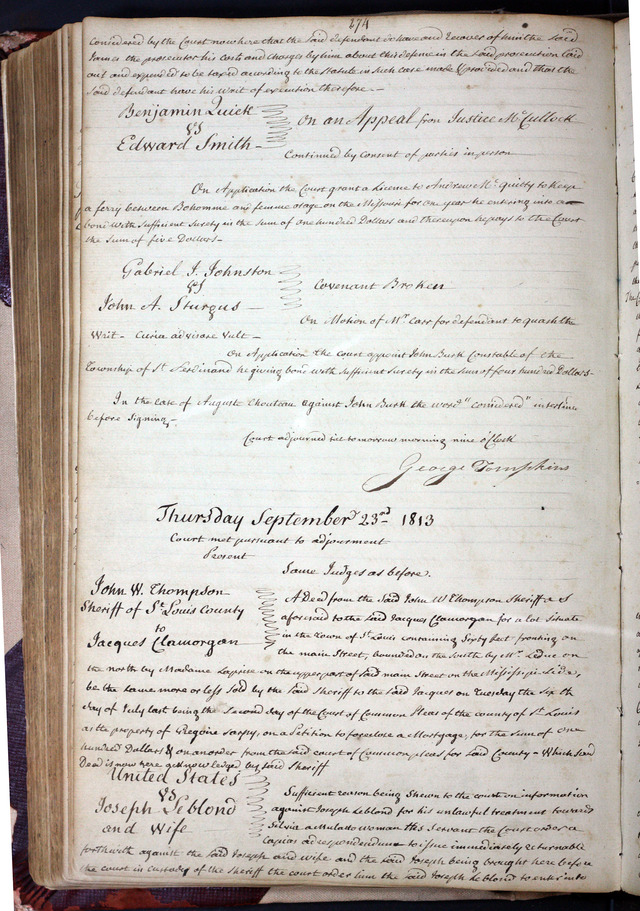 274
Considered by the Court now here that the said defendant do have and recover of him the said
James the prosecutor his costs and charges by him about his defence in the said prosecution laid
out and expended to be taxed according to the statute in such case made & provided and that the
said defendant have his writ of execution therefore.—
Benjamin Quick
vs
Edward Smith—
On an Appeal from Justice McCullock
Continued by consent of parties in person
On Application the Court grant a License to Andrew McQuilty to keep
a ferry between Bohomme and femme osage on the Missouri for one year he entering into a
bond with sufficient surety in the sum of one hundred Dollars and thereupon he pays to the Court
the sum of five Dollars—
Gabriel J. Johnston
vs
John A. Sturgus—
Covenant Broken
On Motion of Mr. Carr for defendant to quash the
Writ— Curia advisare vult—
On Application the court appoint John Burk Constable of the
Township of St Ferdinand he giving bond with sufficient surety in the sum of four hundred Dollars—
In the Case of Auguste Chouteau against John Burk the word "considered" interlined
before signing—
Court adjourned til tomorrow morning nine o'Clock
George Tompkins
Thursday September 23rd 1813
Court met pursuant to adjournment
Present
Same Judges as before.
John W. Thompson
Sheriff of St. Louis County
to
Jacques Clamorgan
A Deed from the said John W Thompson Sheriff as
aforesaid to the said Jacques Clamorgan for a lot situate
in the Town of St Louis containing Sixty feet fronting on
the main Street, bounded on the South by Mr. Leduc on
the north by Madame on the upper part of said main Street on the Mississipi side,
be the same more or less sold by the said Sheriff to the said Jacques on Tuesday the Sixth
day of July last being the second day of the Court of Common Pleas of the county of St Louis
as the property of Gregoire Sarpy, on a Petition to foreclose a Mortgage, for the sum of one
hundred Dollars & on an order from the said court of Common pleas for said County— Which said
Deed is now here acknowledged by said Sheriff
United States
vs
Joseph Leblond
and Wife
Sufficient reason being shewn to the court on information
against Joseph Leblond for his unlawful treatment towards
Silvia a Mulatto woman his Servant the Court order a
Capias ad respondendum to issue immediately returnable
forthwith against the said Joseph and wife and the said Joseph being brought here before
the court in custody of the Sheriff the court order him the said Joseph Leblond to enter into